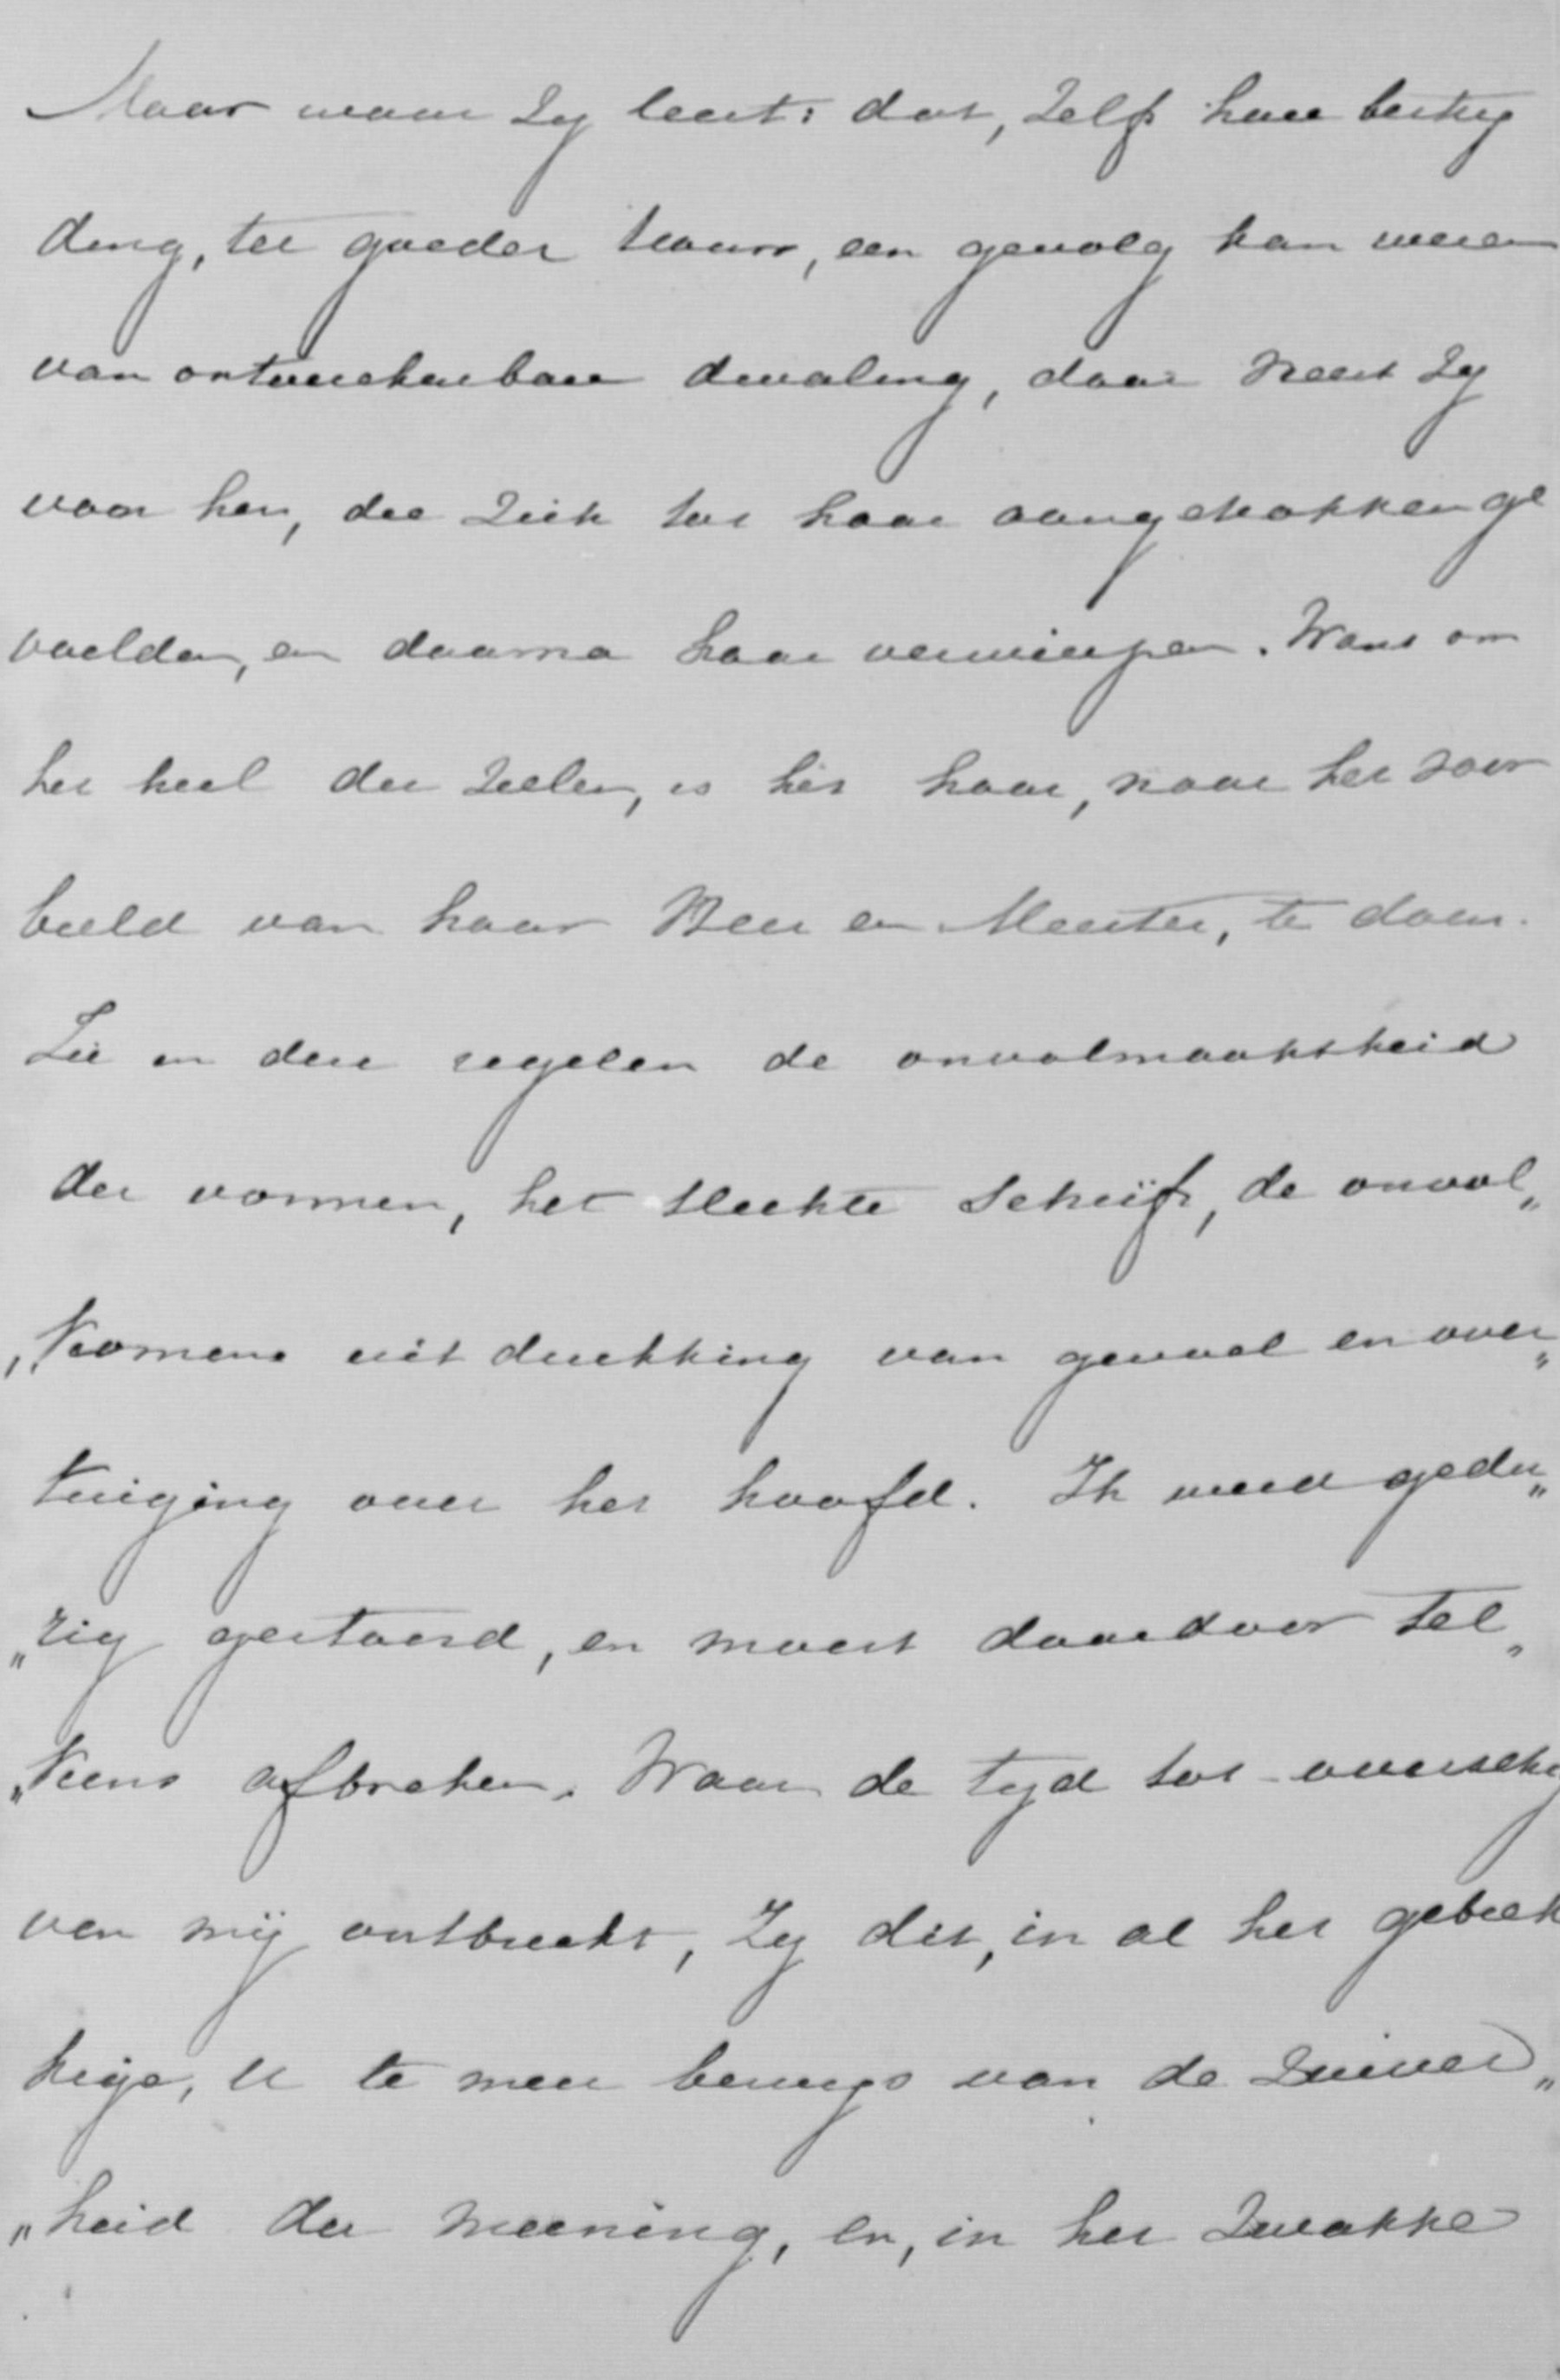 Maar waar zy leert: dat, zelfs hare bestry
ding, ter goeder trouw, een gevolg kan wezen
van ontwerkenbare dwaling, daar vreest zy
voor hen, die zich tot haar aangetrokken ge
voelden, en daarna haar verwierpen. Want om
het heil der zielen, is het haar, naar het voor
beeld van haar Heer en Meester, te doen.
Zie in deze regelen de onvolmaaktheid
der vormen, het slechte schrift, de onvol„
„komene uitdrukking van gevoel en over„
tuiging over het hoofd. Ik werd gedu„
„rig gestoord, en moest daardoor tel„
„kens afbreken. Waar de tyd tot overschry
ven mij ontbreekt, zy dit, in al het gebrek
kige, U te meer bewys van de zuiver„
„heid der meening, en, in het zwakke